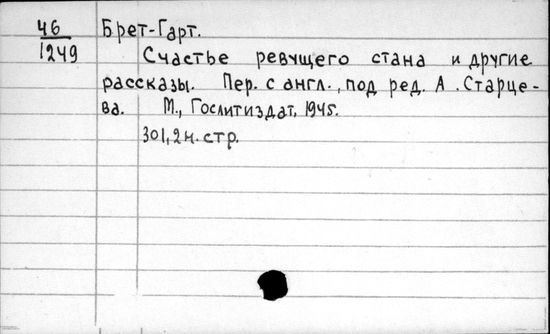 46
1249
Брет-Гарт.
Счастье ревущего стана и другие
рассказы. Пер. с англ., под ред. А. Старце-
ва. М., Гослитиздат, 1945.
301, 2 н. стр.